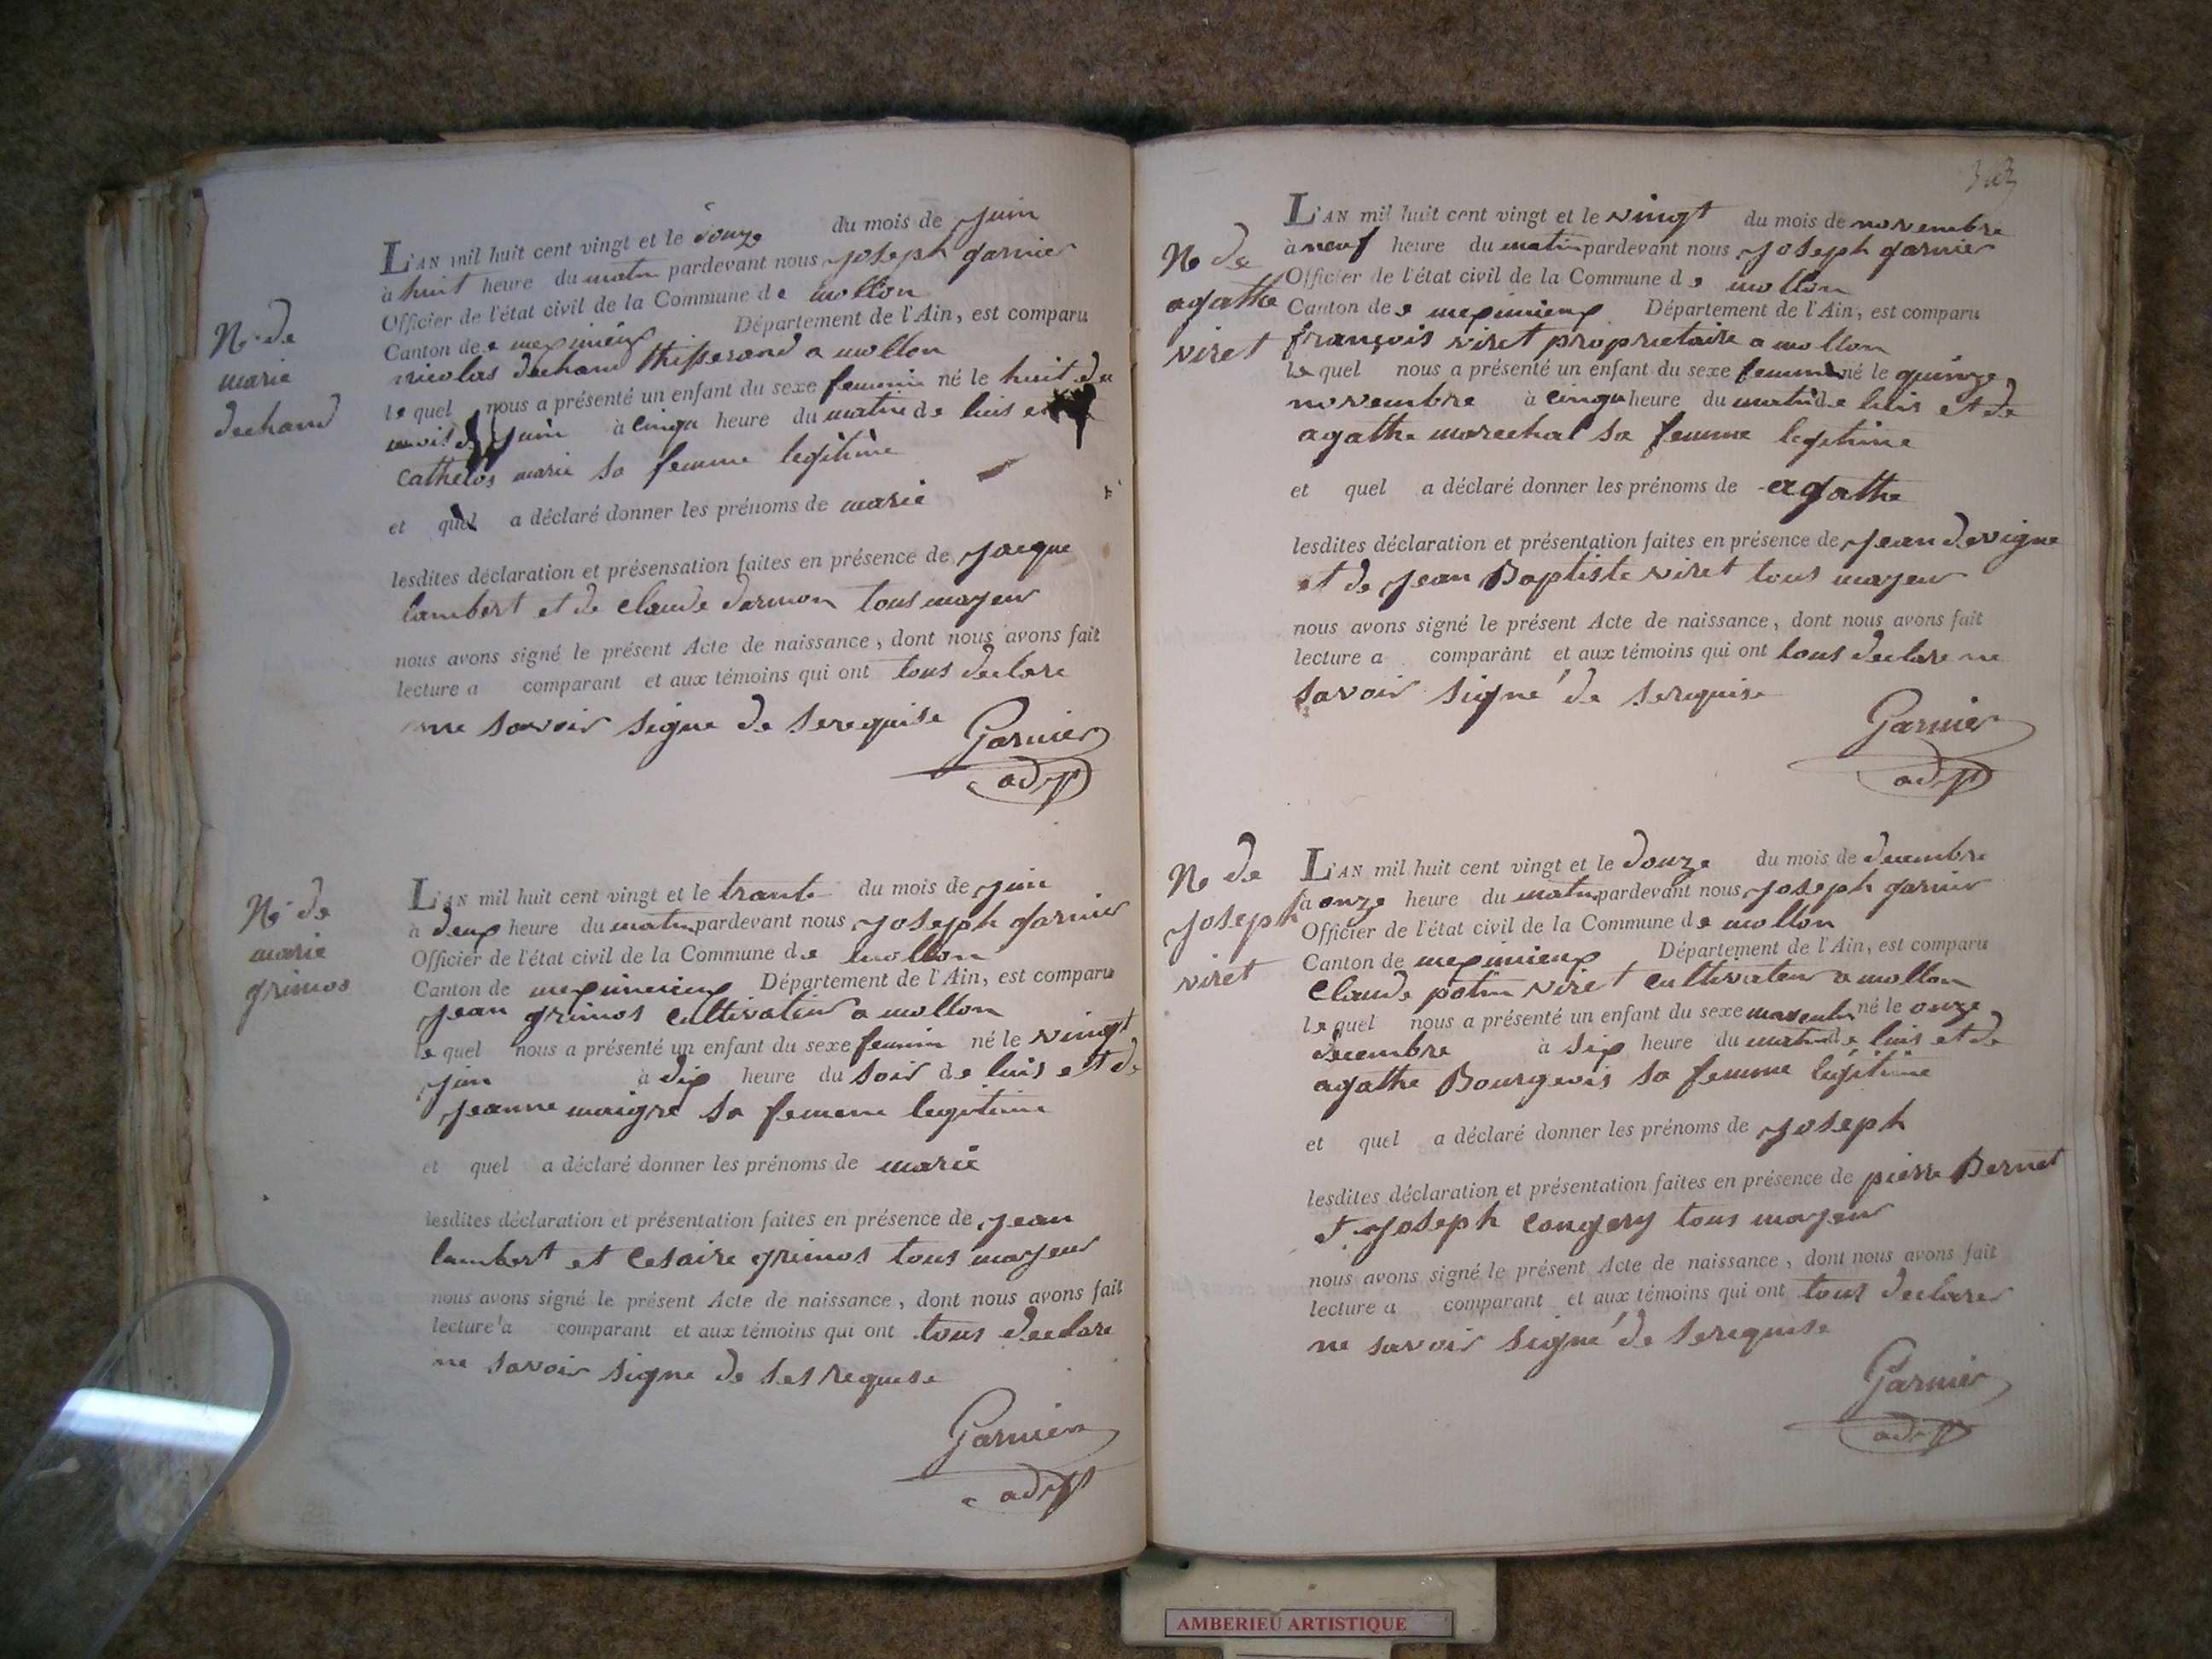 L'AN mil huit cent vingt et le douze du mois de juin
à huit heure du matin pardevant nous joseph garnier
Officier de l'état civil de la Commune de mollon
Canton de meximieux Département de l'Ain, est comparu
nicolas dechand thisserand a mollon
lequel nous a présenté un enfant du sexe feminin né le huit du
mois de juin à cinqu heure du matin de luis et
cathelos marie sa femme legitime
et quel a déclaré donner les prénoms de marie
lesdites déclaration et présensation faites en présence de jacque
lambert et de claude dermon tous majeur
nous avons signé le présent Acte de naissance, dont nous avons fait
lecture a comparant et aux témoins qui ont tous declare
ne savoir signe de serequise
Garnier
adjt
Ne de
marie
dechand
L'AN mil huit cent vingt et le trante du mois de juin
à deux heure du matin pardevant nous joseph garnier
Officier de l'état civil de la Commune de mollon
Canton de meximieux Département de l'Ain, est comparu
jean grimos cultivateur a mollon
lequel nous a présenté un enfant du sexe feminin né le vingt
juin à dix heure du soir de luis et de
jeanne maigre sa femme legitime
et quel a déclaré donner les prénoms de marie
lesdites déclaration et présentation faites en présence de jean
lambert et cesaire grimos tous majeur
nous avons signé le présent Acte de naissance, dont nous avons fait
lecture a comparant et aux témoins qui ont tous declare
ne savoir signe de ses requise
Garnier
adjt
Ne de
marie
grimos
L'AN mil huit cent vingt et le vingt du mois de novembre
à neuf heure du matin pardevant nous joseph garnier
Officier de l'état civil de la Commune de mollon
Canton de meximieux Département de l'Ain, est comparu
françois viret proprietaire a mollon
lequel nous a présenté un enfant du sexe feminin né le quinze
novembre à cinqu heure du matin de luis et de
agathe marechal sa femme legitime
et quel a déclaré donner les prénoms de agathe
lesdites déclaration et présentation faites en présence de jean devigne
et de jean Baptiste viret tous majeur
nous avons signé le présent Acte de naissance, dont nous avons fait
lecture a comparant et aux témoins qui ont tous declare ne
savoir signé de serequise
Garnier
adjt
Ne de
agathe
viret
L'AN mil huit cent vingt et le douze du mois de decembre
à onze heure du matin pardevant nous joseph garnier
Officier de l'état civil de la Commune de mollon
Canton de meximieux Département de l'Ain, est comparu
claude potin viret cultivateur a mollon
lequel nous a présenté un enfant du sexe masculin né le onze
decembre à six heure du matin de luis et de
agathe Bourgeois sa femme legitime
et quel a déclaré donner les prénoms de joseph
lesdites déclaration et présentation faites en présence de pierre Bernet
et joseph congery tous majeur
nous avons signé le présent Acte de naissance, dont nous avons fait
lecture a comparant et aux témoins qui ont tous declarer
ne savoir signé de serequise
Garnier
adjt
Ne de
joseph
viret
AMBERIEU ARTISTIQUE